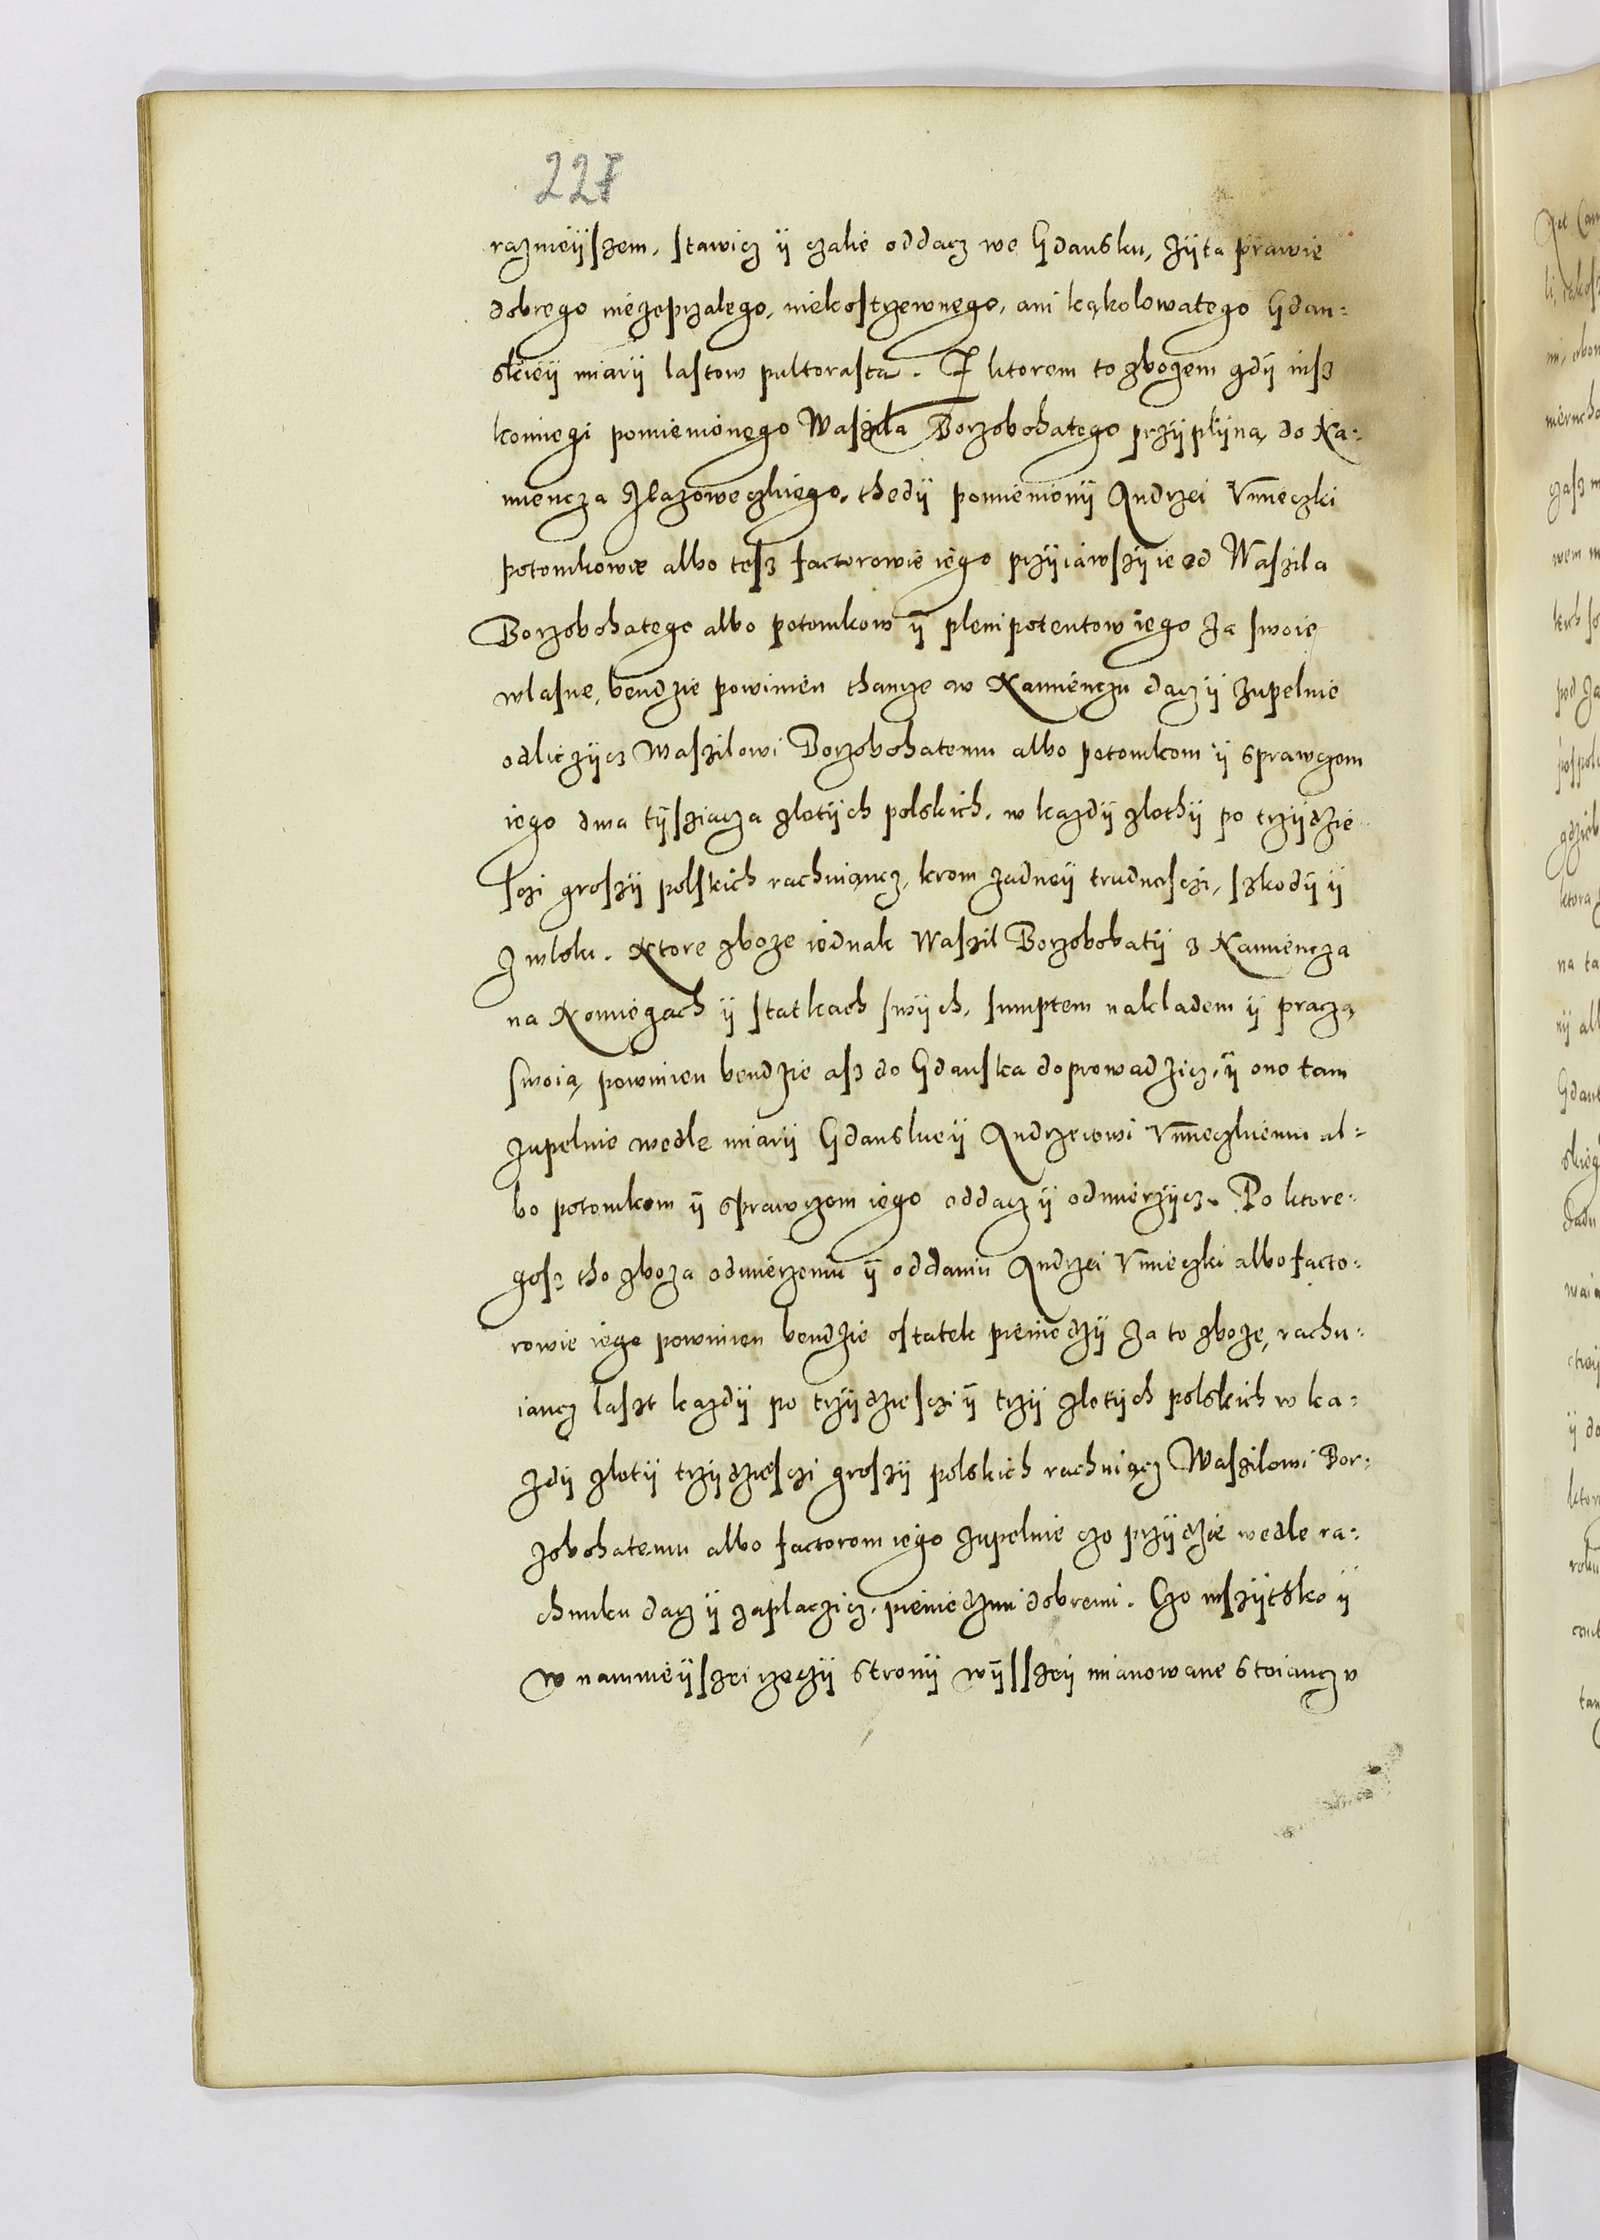 227
razmeÿszem, stawicz ÿ czalie oddacz we Gdansku, żÿta prawie
dobrego niezeprzalego, niekostrzewnego, ani kąkolowatego Gdan-
skieÿ miarÿ lastow pultorasta. Z ktorem to zbożem gdÿ iusz
komiegi pomienionego Waszila Borzobohatego przÿplÿną, do Ka-
miencza thedÿ pomienionÿ Andrzei Vmieczki
potomkowie albo tesz factorowie iego przÿiawszÿ ie od Waszila
Borzobohatego albo potomkow ÿ plenipotentow iego za swoie
wlasne, bendzie powinien thamże w Kamienczu dacz ÿ zupelnie
odliczÿcz Waszilowi Borzobohatemu albo potomkom ÿ sprawczom
iego dwa tÿsziacza zlotÿch polskich, w kazdÿ zlothÿ po trzÿdzie
sczi groszÿ polskich rachuiąncz, krom zadneÿ trudnosczi, szkodÿ ÿ
zwloku. Ktore zboze iednak Waszil Borzobohatÿ z Kamiencza
na Komiegach ÿ statkach swÿch, sumptem nakladem ÿ praczą
swoią, powinien bendzie asz do Gdanska doprowadzicz, ÿ ono tam
zupelnie wedle miarÿ Gdanskieÿ Andrzeiowi Vmieczkiemu al-
bo potomkom ÿ sprawczom iego oddacz ÿ odmierzÿcz. Po ktore-
gosz tho zboza odmierzeniu ÿ oddaniu Andrzei Vmieczki albo facto-
rowie iego powinien bendzie ostatek pieniedzÿ za to zboże, rachu-
iancz laszt kazdÿ po trzÿdziesczi ÿ trzÿ zlotÿch polskich w ka-
zdÿ zlotÿ trzÿdziesczi groszÿ polskich rachuiącz Waszilowi Bor-
zobohatemu albo factorom iego zupelnie czo przÿdzie wedle ra-
chunku dacz ÿ zaplaczicz, pieniedzmi dobremi. Czo wszÿtsko ÿ
w nammieÿszei rzeczÿ stronÿ wÿsszeÿ mianowane stoiancz v